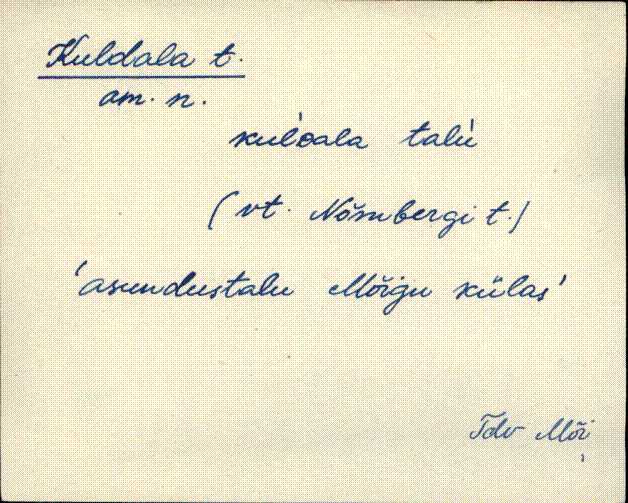 Kuldala t.
am. n.
kuĺᴅala talù
(vt. Nõmbergi t.)
'asundustalu Mõigu külas'
Tdv Mõi